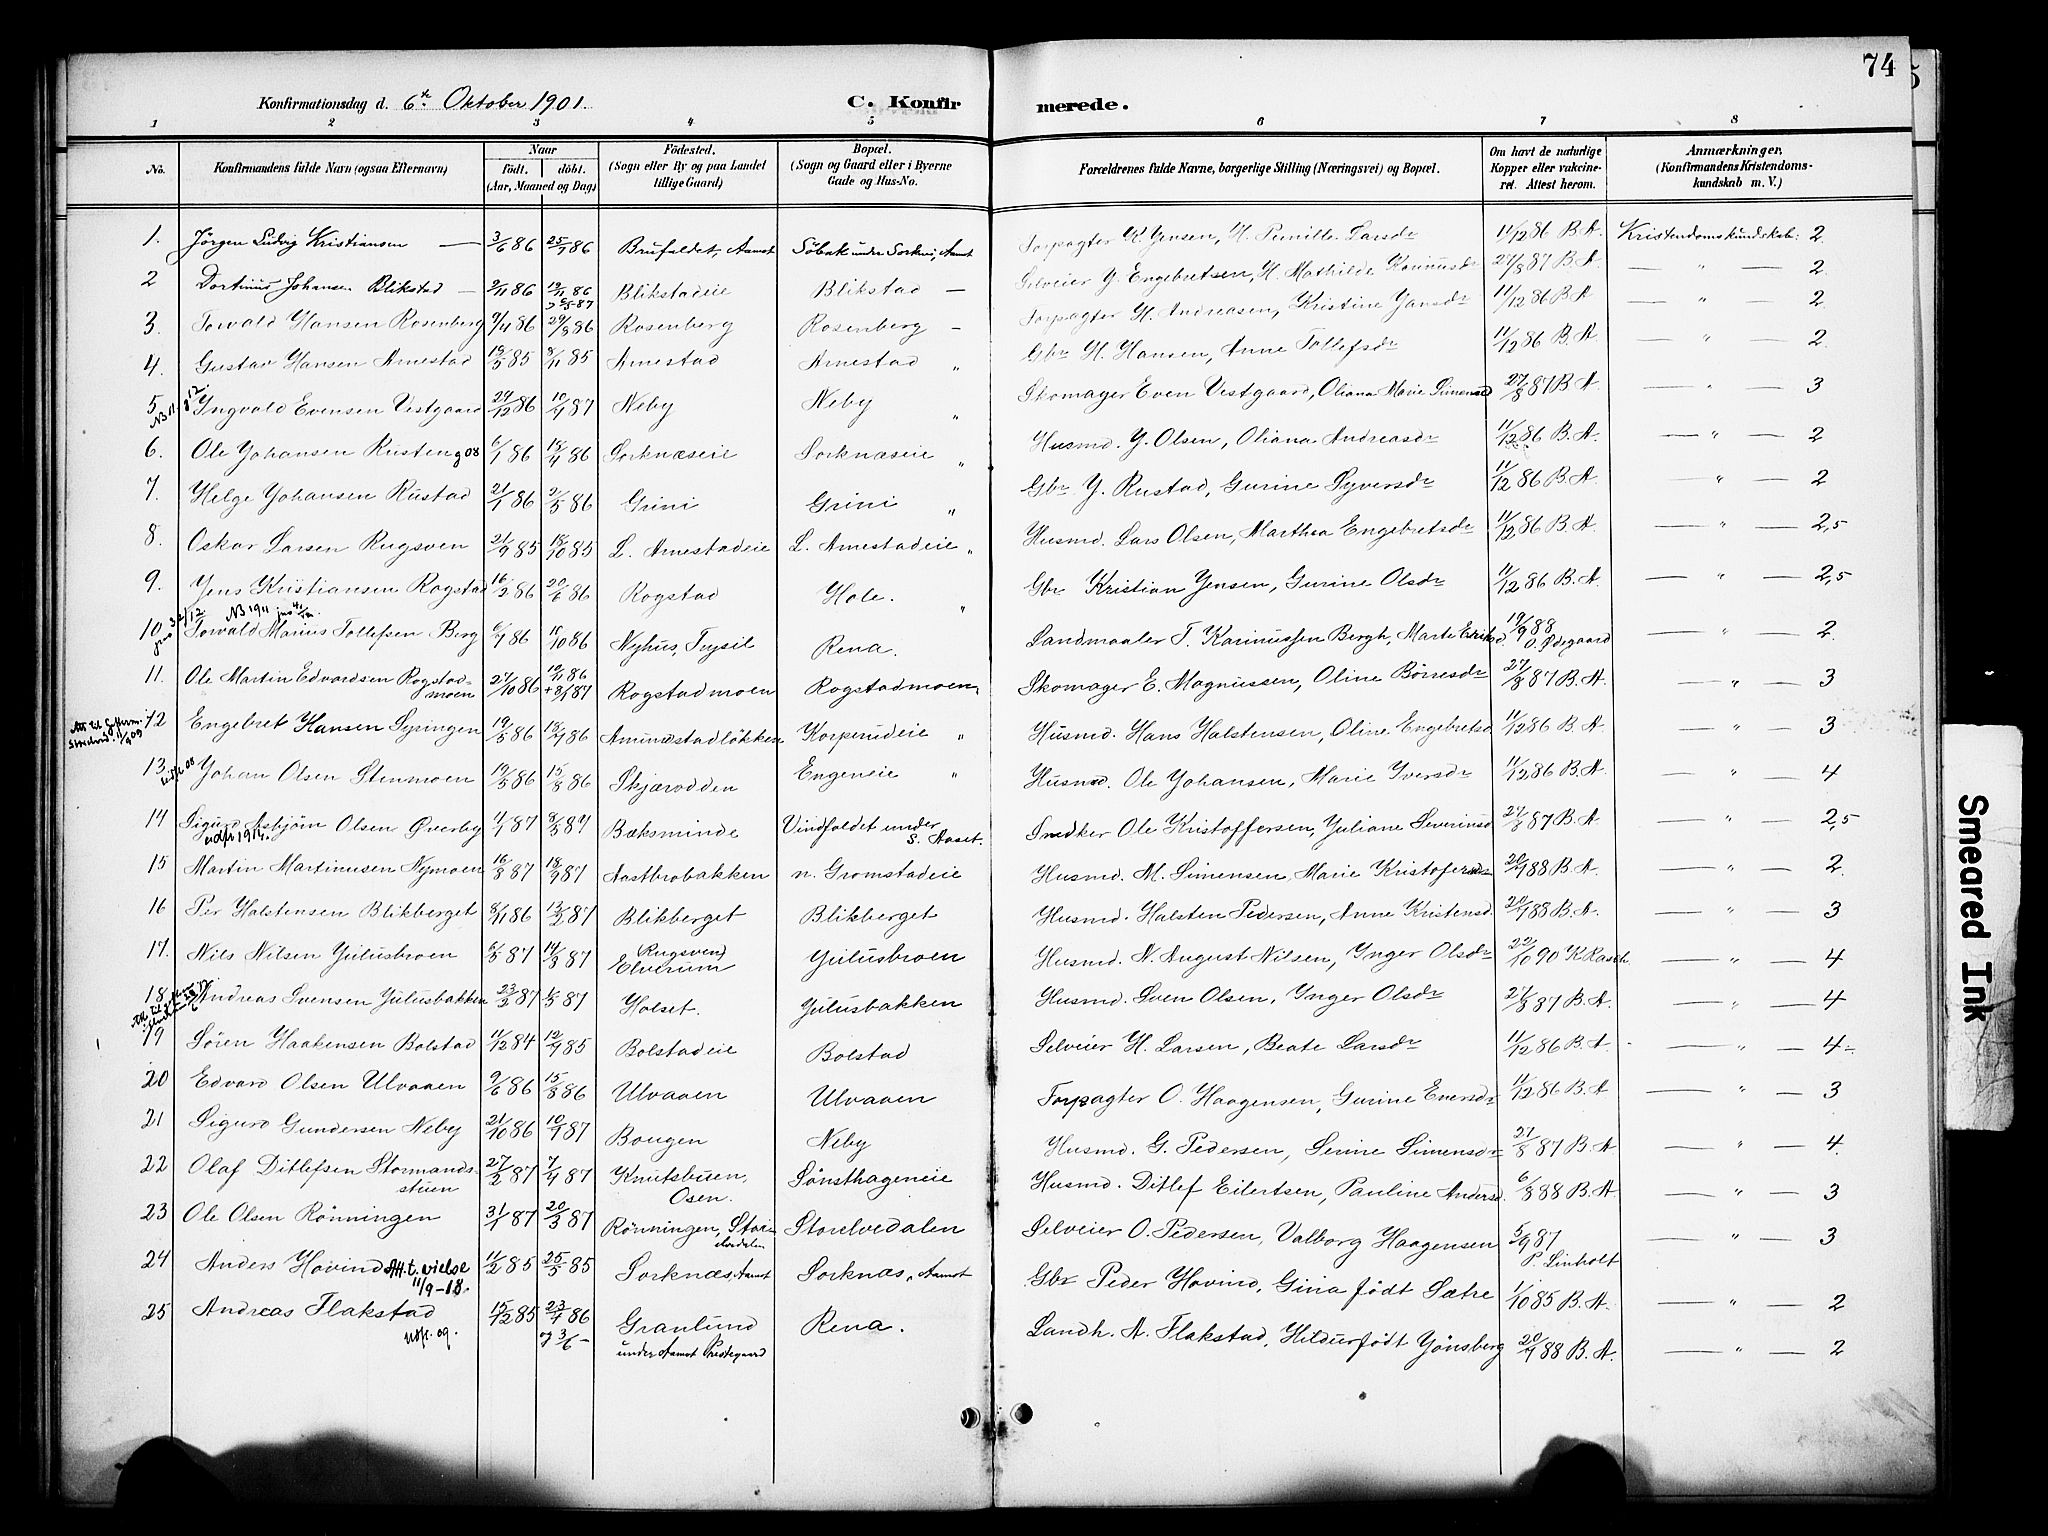 74
Konfirmationsdag d. 6te Oktober 1901.
C. Konfirmerede.
1 2 3 4 5 6 7 8
No.
Konfirmandens fulde Navn (ogsaa Efternavn)
Naar
født. døbt.
(Aar, Maaned og Dag)
Fødested.
(Sogn eller By og paa Landet
tillige Gaard)
Bopæl.
(Sogn og Gaard eller i Byerne
Gade og Hus-No.
Forældrenes fulde Navne, borgerlige Stilling (Næringsvei) og Bopæl.
Om havt de naturlige
Kopper eller vakcine-
ret. Attest herom.
Anmærkninger.
(Konfirmandens Kristendoms-
kundskab m. V.)
1. Jörgen Ludvig Kristiansen — 3/6 86 25/7 86 Brufaldet, Aamot Söbak under Sorknes, Aamot Forpagter K. Jensen, H. Pernille Larsdr 11/12 86 B.A. Kristendomskundskab: 2.
2 Dortinus Johansen Blikstad — 2/11 86 19/11 86 Blikstadeie Blikstad — Selveier J. Engebretsen, H. Mathilde Karinusdr 27/8 87 B.A. — " — 2.
3. Torvald Hansen Rosenberg 9/4 86 29/8 86 Rosenberg Rosenberg — Forpagter H. Andreasen, Kristine Jansdr 11/12 86 B.A — " — 2
4. Gustav Hansen Arnestad 19/5 85 8/11 85 Arnestad Arnestad " Gbr H. Hansen, Anne Tollefsdr 11/12 86 B.A. — " — 2.
5 Yngvald Evensen Vestgaard 29/12 86 10/4 87 Neby Neby " Skomager Even Vestgaard, Oliana Marie Simensd 27/8 87 B.A. — " — 3
6. Ole Johansen Rusten 6/1 86 18/4 86 Sorknæseie Sorknæseie " Husmd. J. Olsen, Oliana Andreasdr 11/12 86 B.A. — " — 2
7. Helge Johansen Rustad 21/1 86 2/5 86 Grini Grini " Gbr J. Rustad, Gurine Syversdr 11/12 86 B.A. — " — 2
8. Oskar Larsen Rugsven 21/9 85 18/10 85 L. Arnestadeie L. Arnestadeie " Husmd. Lars Olsen, Marthea Engebretsdr 11/12 86 B.A. — " — 2,5
9. Jens Kristiansen Rogstad 16/2 86 20/6 86 Rogstad Hole. " Gbr Kristian Jensen, Gurine Olsdr 11/12 86 B.A. — " — 2,5
NB 1911
10. Torvald Marius Tollefsen Berg 6/7 86 10/10 86 Nyhus, Trysil Rena. Landmaaler T. Karinussen Bergh, Marte Eriksd. 19/9 88 O. Ødegaard — " — 2.
11. Ole Martin Edvardsen Rogstad-
moen 27/10 86 19/11 86 Rogstadmoen Rogstadmoen " Skomager E. Magnussen, Oline Börresdr 27/8 87 B.A. — " — 3
12 Engebret Hansen Syringen 19/5 86 18/7 86 Amundstadlökken Korperudeie " Husmd. Hans Halstensen, Oline Engebretsd 11/12 86 B.A. — " — 3
13. Johan Olsen Stenmoen 19/5 86 15/8 86 Skjærodden Engeneie " Husmd. Ole Johansen, Marie Iversdr 11/12 86 B.A. — " — 4
14 Sigurd Asbjörn Olsen Øverby 11/1 87 8/5 87 Bæksminde Vindfaldet under
S. Aaset. Snedker Ole Kristoffersen, Juliane Severinsd 27/8 87 B.A. — " — 2,5
udfl 1914.
15 Martin Martinusen Nymoen 16/8 87 18/9 87 Aastbrobakken n. Gromstadeie Husmd. M. Simensen, Marie Kristofersdr 20/7 88 B.A. — " — 2.
16 Per Halstensen Blikberget 8/11 86 13/2 87 Blikberget Blikberget Husmd. Halsten Pedersen, Anne Kristensd. 20/7 88 B.A. — " — 3
17. Nils Nilsen Julusbroen 6/3 87 14/3 87 Rugsven,
Elverum Julusbroen Husmd. N. August Nilsen, Inger Olsdr 22/10 90 K Rasch. — " — 4
18. Andreas Svensen Julusbakken 23/2 87 1/5 87 Holset. Julusbakken Husmd. Sven Olsen, Inger Olsdr 27/8 87 B.A. — " — 4
19 Sören Haakensen Bolstad 11/12 84 12/9 85 Bolstadeie Bolstad Selveier H. Larsen, Beate Larsdr 11/12 86 B.A. — " — 4
20 Edvard Olsen Ulvaaen 9/6 86 15/8 86 Ulvaaen Ulvaaen Forpagter O. Haagensen, Gurine Eversdr 11/12 86 B.A — " — 3
21 Sigurd Gundersen Neby 21/10 86 10/7 87 Bougen Neby Husmd. G. Pedersen, Serine Simensdr 27/8 87 B.A. — " — 4.
22 Olaf Ditlefsen Stormands-
stuen 27/2 87 7/4 87 Knutsbuen,
Osen. Sönsthageneie Husmd. Ditlef Eilertsen, Pauline Andersd. 6/8 88 B.A. — " — 3
23 Ole Olsen Rönningen 31/1 87 20/3 87 Rönningen, Stor-
elvedalen Storelvedalen Selveier O. Pedersen, Valborg Haagensen 5/9 87
P. Linholt — " — 3
24 Anders Hovind Att. t. vielse
11/9-18. 11/2 85 25/5 85 Sorknæs, Aamot Sorknæs, Aamot Gbr Peder Hovind, Gina født Sætre 1/10 85 B.A. — " — 2
25 Andreas Flakstad 15/12 85 23/4 86 Granlund
under Aamot Prestegaard Rena. Landh. A. Flakstad, Hildur født Jönsberg 20/7 88 B.A. — " — 2
Utfl. 09.
Smeared Ink